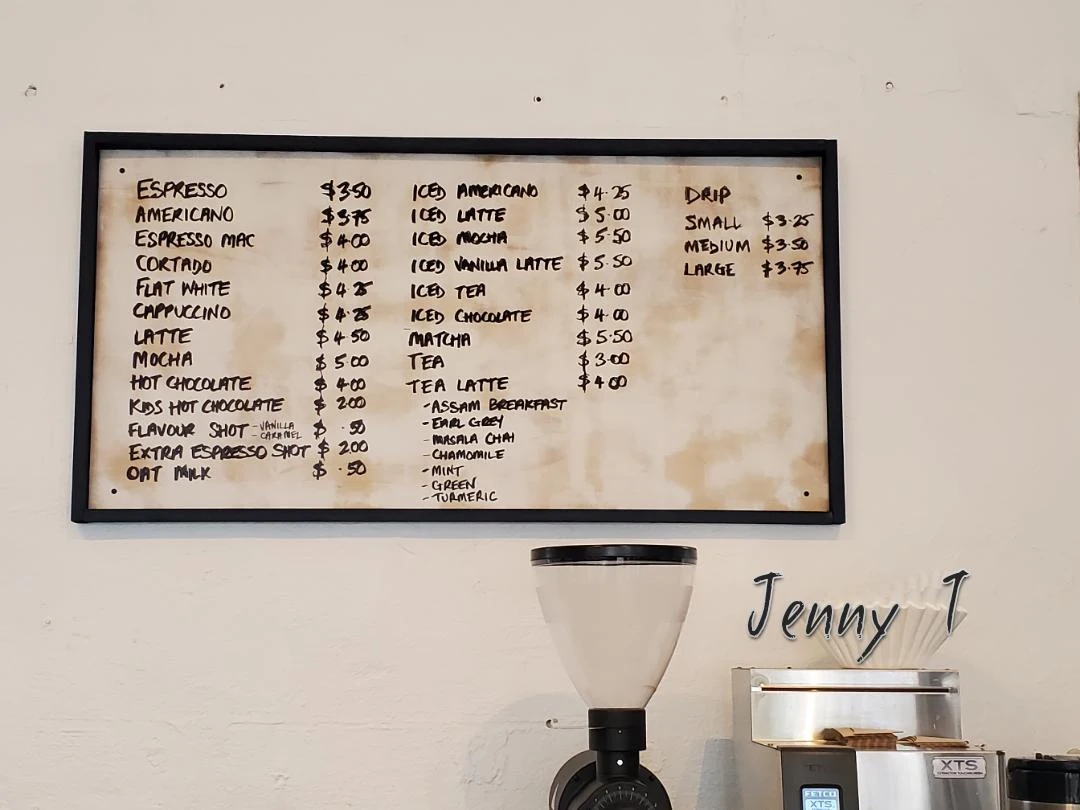 ESPRESSO $3.50
AMERICANO $3.75
ESPRESSO MAC $4.00
CORTADO $4.00
FLAT WHITE $4.25
CAPPUCCINO $4.25
LATTE $4.50
MOCHA $5.00
HOT CHOCOLATE $4.00
KIDS HOT CHOCOLATE $2.00
FLAVOUR SHOT -VANILLA $ .50
-CARAMEL
EXTRA ESPRESSO SHOT $2.00
OAT MILK $ .50
ICED AMERICANO $4.25
ICED LATTE $5.00
ICED MOCHA $5.50
ICED VANILLA LATTE $5.50
ICED TEA $4.00
ICED CHOCOLATE $4.00
MATCHA $5.50
TEA $3.00
TEA LATTE $4.00
-ASSAM BREAKFAST
-EARL GREY
-MASALA CHAI
-CHAMOMILE
-MINT
-GREEN
-TURMERIC
DRIP
SMALL $3.25
MEDIUM $3.50
LARGE $3.75
Jenny T
XTS
FETCO
XTS